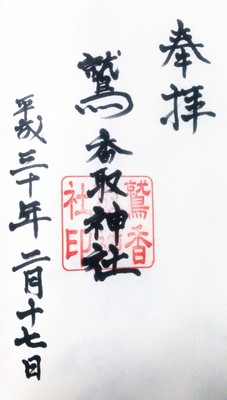 奉拝
鷲香取神社
平成三十年二月十七日